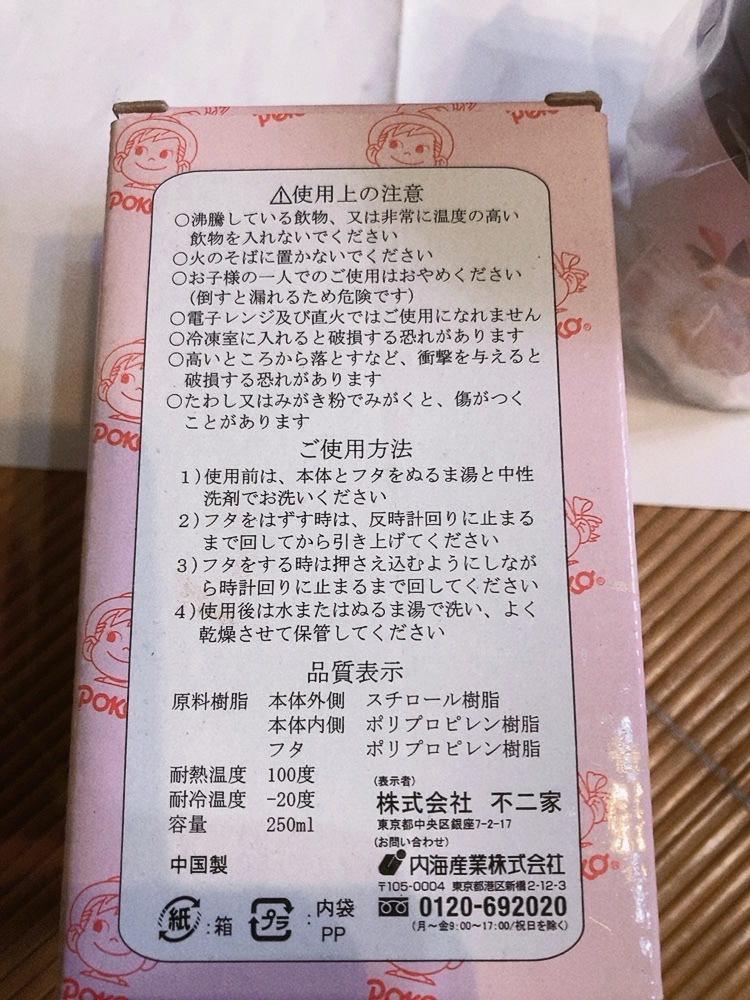 POKO
⚠使用上の注意
○沸騰している飲物、又は非常に温度の高い
飲物を入れないでください
○火のそばに置かないでください
○お子様の一人でのご使用はおやめください
(倒すと漏れるため危険です)
○電子レンジ及び直火ではご使用になれません
○冷凍室に入れると破損する恐れがあります
○高いところから落とすなど、衝撃を与えると
破損する恐れがあります
○たわし又はみがき粉でみがくと、傷がつく
ことがあります
ご使用方法
1)使用前は、本体とフタをぬるま湯と中性
洗剤でお洗いください
2)フタをはずす時は、反時計回りに止まる
まで回してから引き上げてください
3)フタをする時は押さえ込むようにしなが
ら時計回りに止まるまで回してください
4)使用後は水またはぬるま湯で洗い、よく
乾燥させて保管してください
品質表示
原料樹脂 本体外側 スチロール樹脂
本体内側 ポリプロピレン樹脂
フタ ポリプロピレン樹脂
耐熱温度 100度
耐冷温度 -20度
容量 250ml
中国製
(表示者)
株式会社 不二家
東京都中央区銀座7-2-17
(お問い合わせ)
内海産業株式会社
〒105-0004 東京都港区新橋2-12-3
0120-692020
(月～金9:00～17:00/祝日を除く)
紙:箱 プラ:内袋
PP